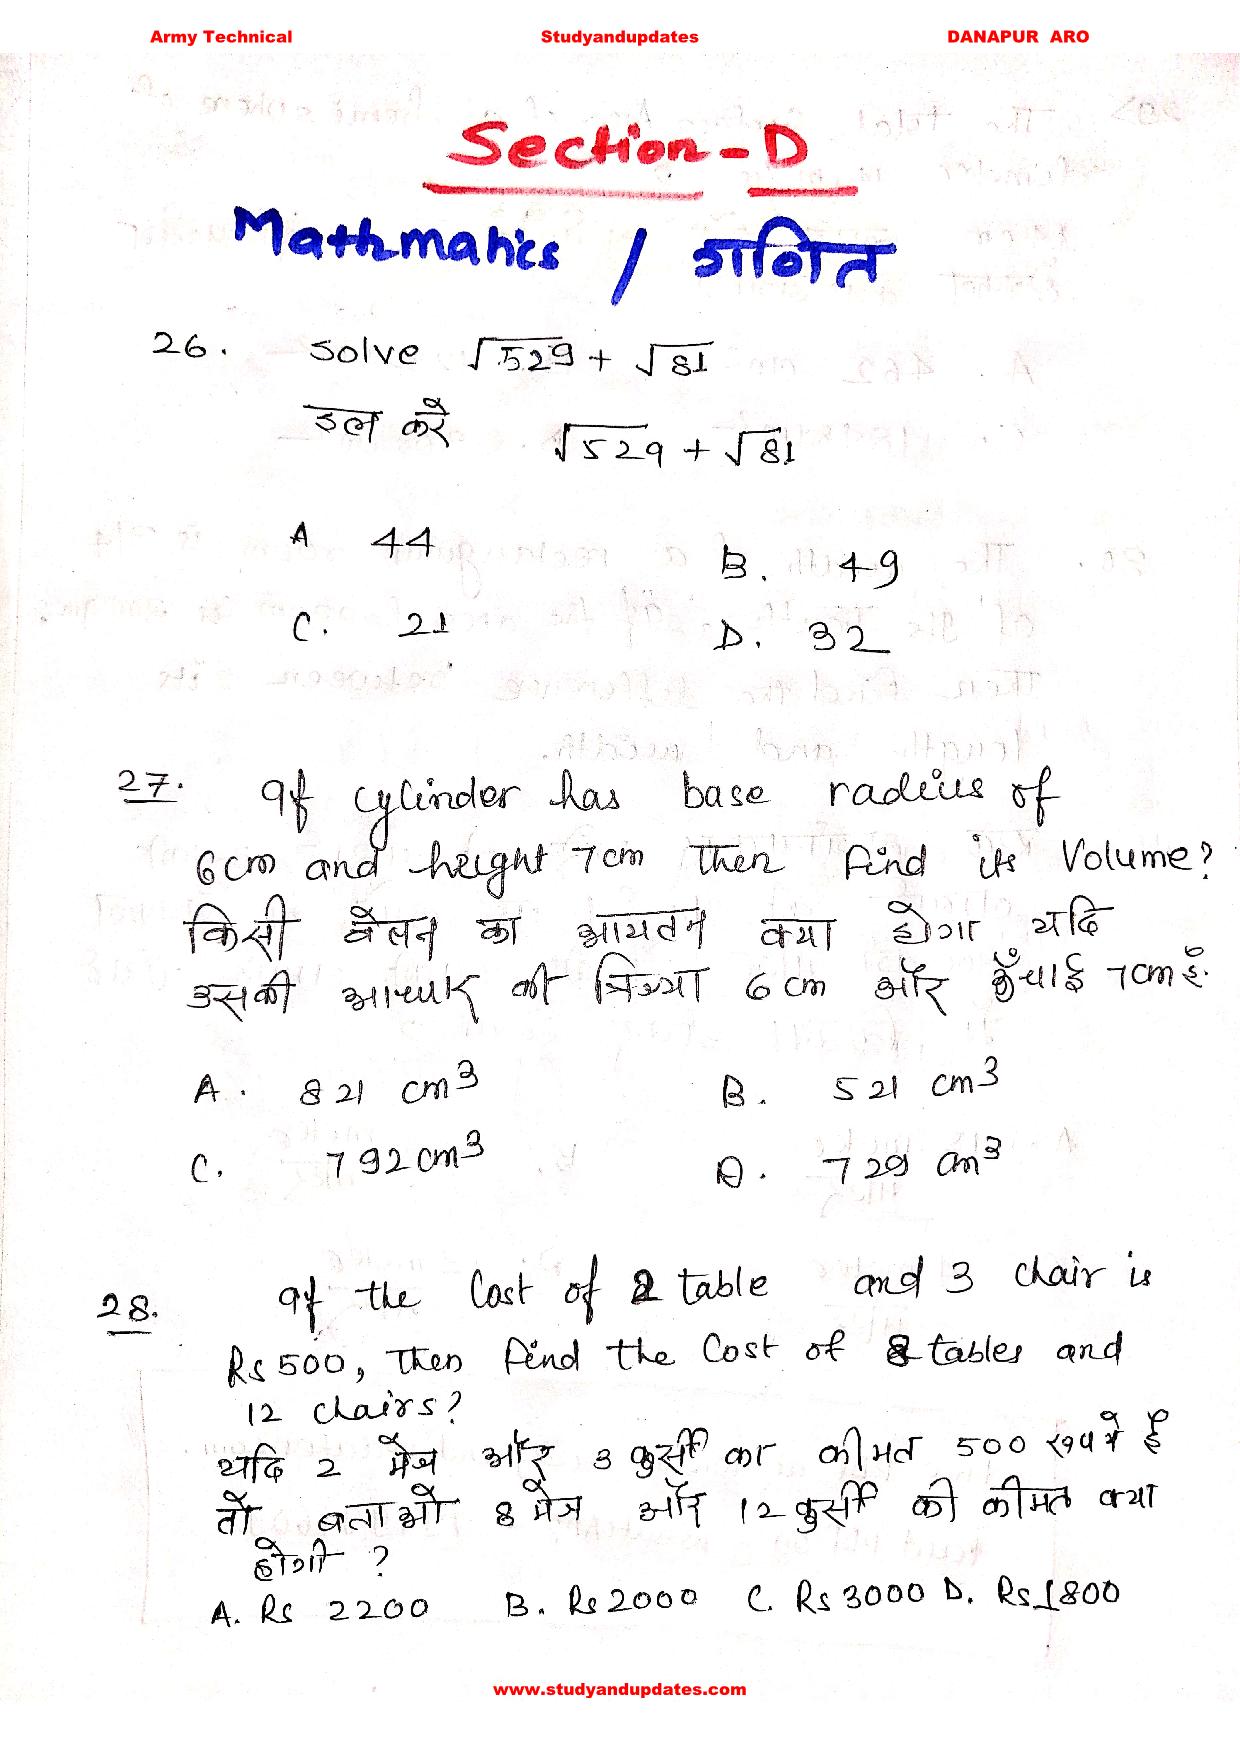 Army Technical Studyandupdates DANAPUR ARO
Section-D
Mathmatics / गनित
26. Solve √529 + √81
हल करे √529 + √81
A 44 B. 49
C. 21 D. 32
27. If cylinder has base radius of
6cm and height 7cm then find its Volume?
किसी बेलन का आयतन क्या होगा यदि
उसकी आधार की त्रिज्या 6cm और ऊँचाई 7cm है.
A. 821 cm³ B. 521 cm³
C. 792cm³ D. 729 cm³
28. If the Cost of 2 table and 3 chair is
Rs 500, then find the Cost of 8 tables and
12 chairs?
यदि 2 मेज और 3 कुर्सी का कीमत 500 रुपये है
तो बताओ 8 मेज और 12 कुर्सी की कीमत क्या
होगी ?
A. Rs 2200 B. Rs 2000 C. Rs 3000 D. Rs 1800
www.studyandupdates.com